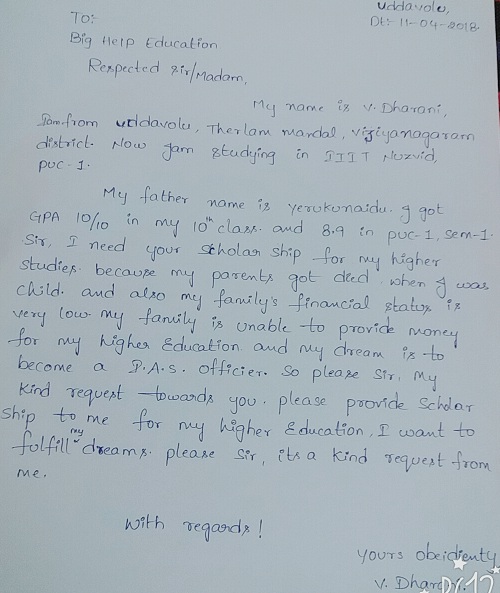 Uddavolu,
To:- Dt:- 11-04-2018
Big Help Education
Respected Sir/Madam,
My name is V. Dharani,
Iam from uddavolu, Therlam mandal, viziyanagaram
district. Now Jam studying in IIIT Nuzvid,
puc-1.
My father name is Yerukunaidu. I got
GPA 10/10 in my 10th class. and 8.9 in puc-1, sem-1.
Sir, I need your Scholar Ship for my higher
studies. because my parents got died when I was
child. and also my family's financial status is
very low. my family is unable to provide money
for my higher Education and my dream is to
become a I.A.S. officier. So please Sir, My
Kind request towards you. please provide Scholar
Ship to me for my higher Education, I want to
fulfill my dreams. please Sir, its a kind request from
me.
With regards!
yours obeidienty
V. Dharani.